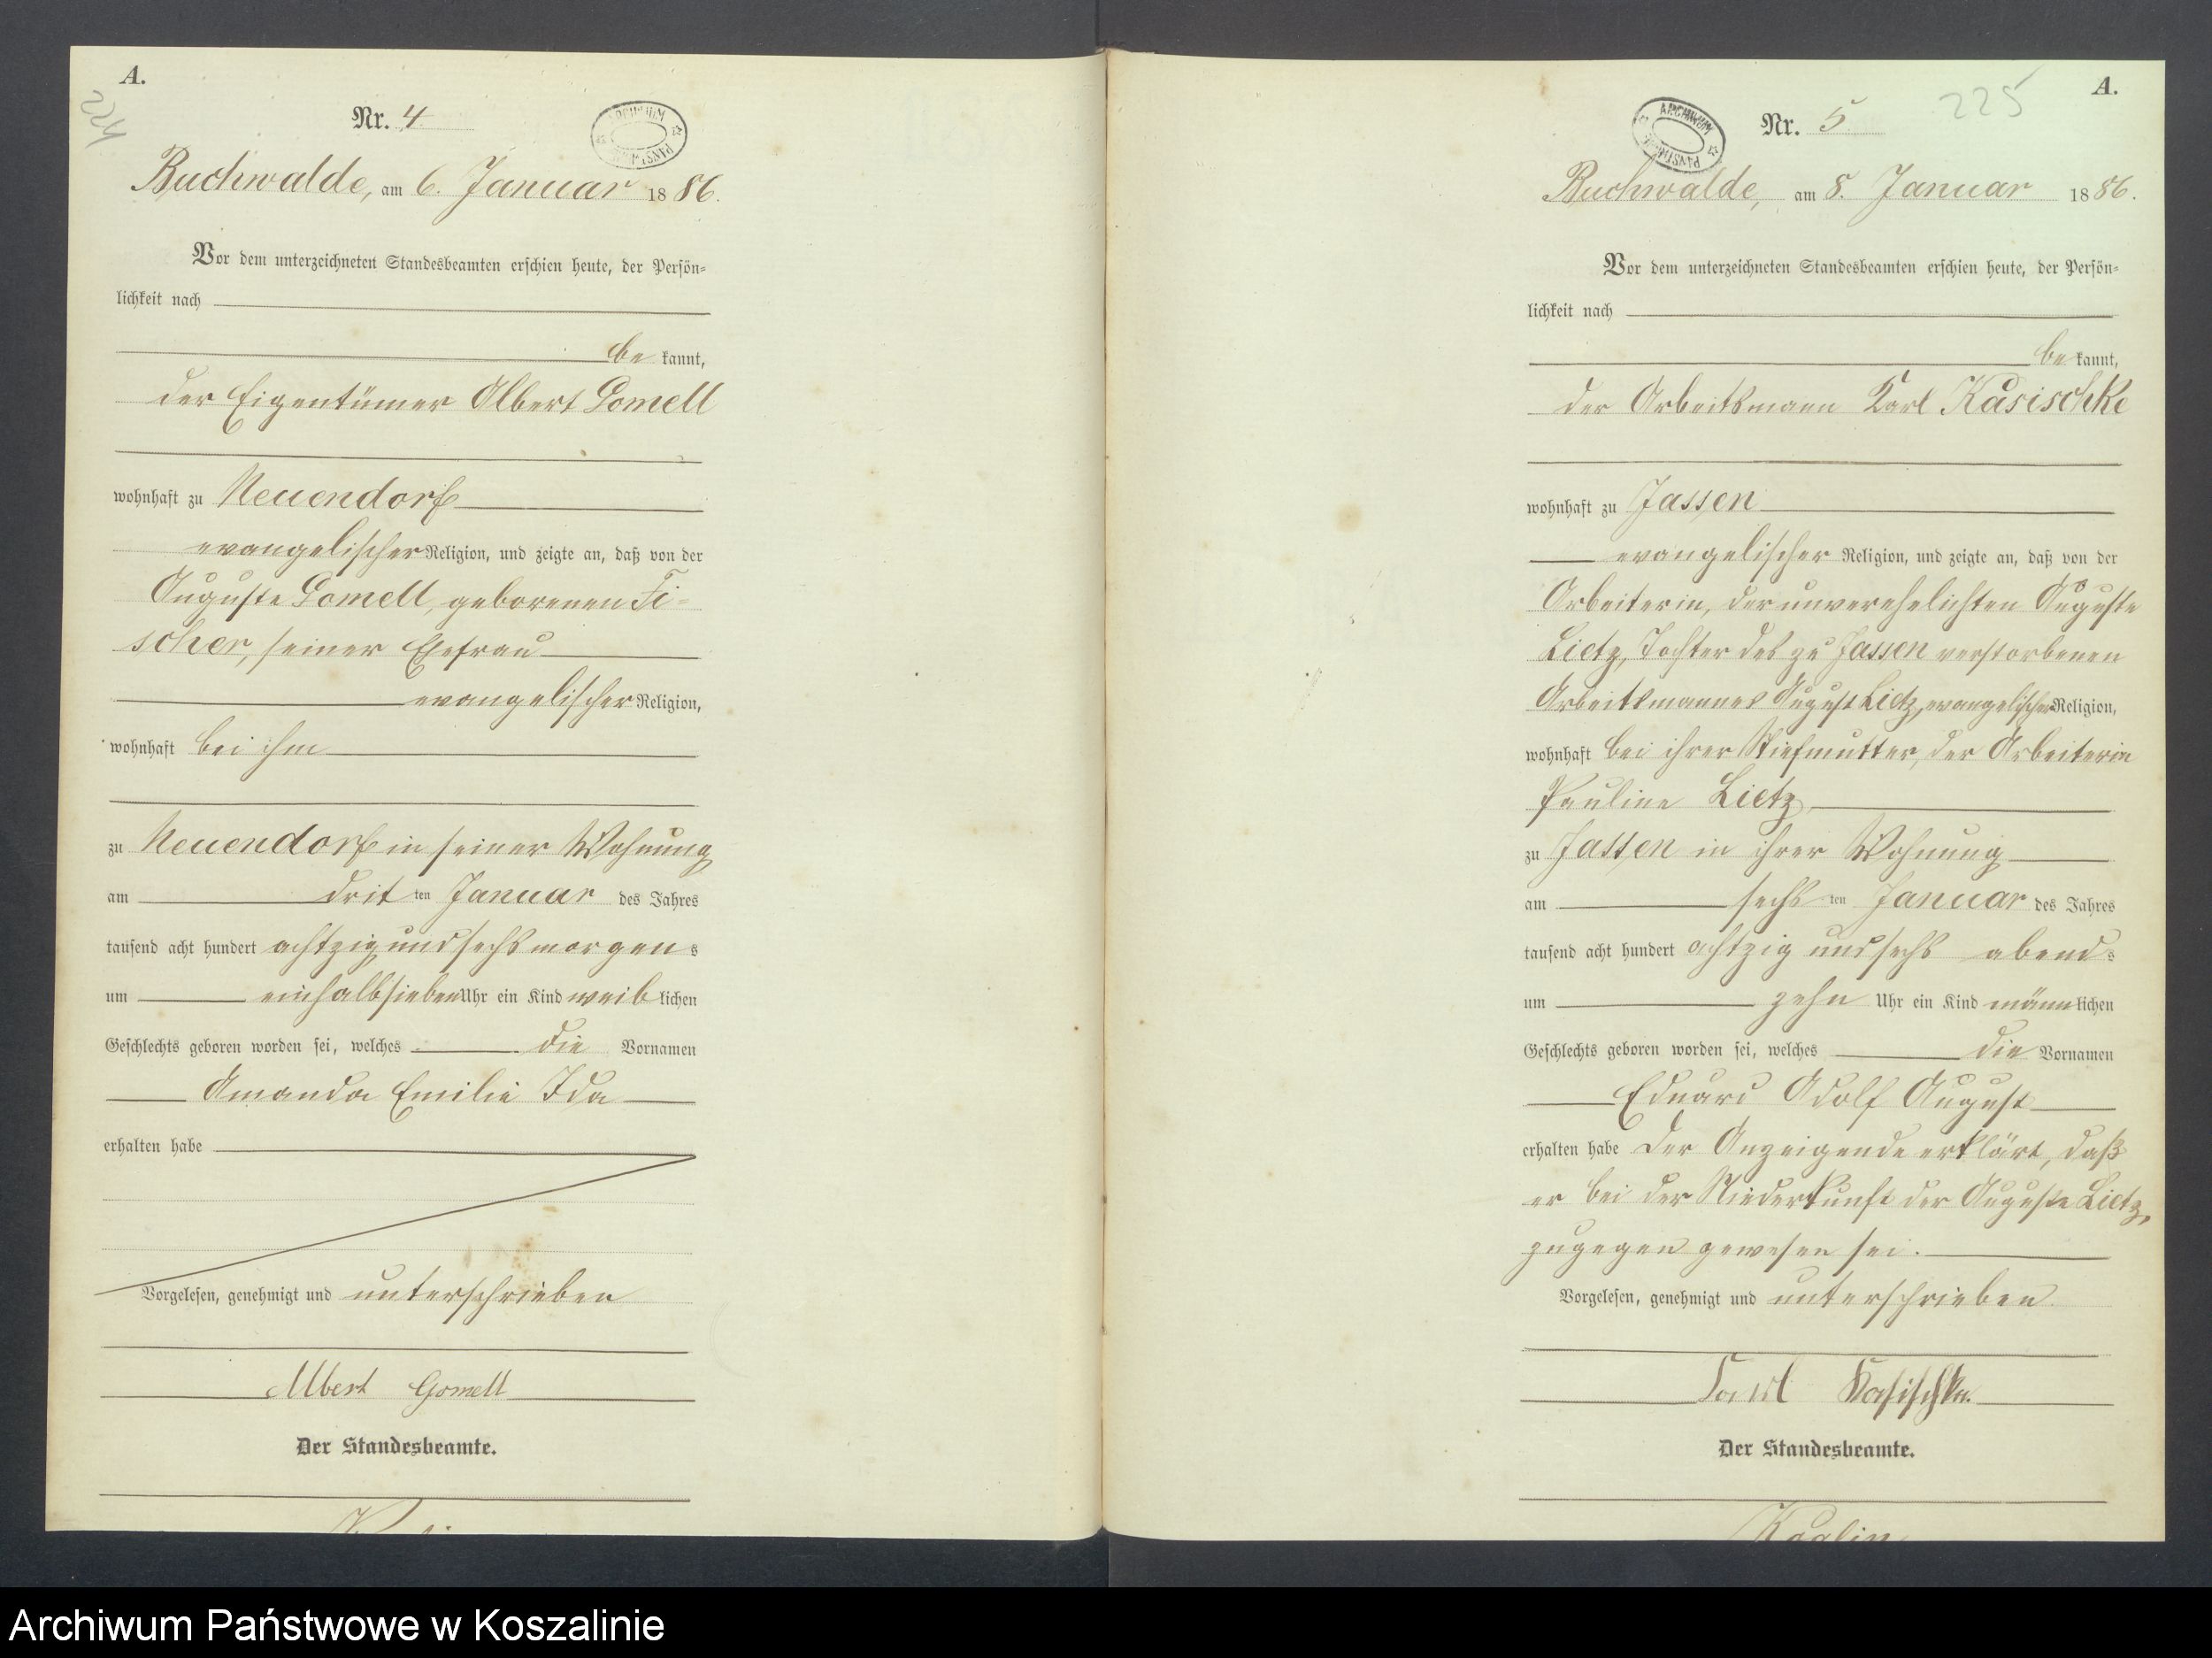 A.
224
Nr. 4
ARCHIWUM PAŃSTWOWE
Buchwalde, am 6. Januar 1886.
Vor dem unterzeichneten Standesbeamten erschien heute, der Persön=
lichkeit nach
be kannt,
der Eigentümer Albert Gomell
wohnhaft zu Neuendorf
evangelischer Religion, und zeigte an, daß von der
Auguste Gomell, geborenen Fi=
scher, seiner Ehefrau
evangelischer Religion,
wohnhaft bei ihm
zu Neuendorf in seiner Wohnung
am drit ten Januar des Jahres
tausend acht hundert achtzig und sechs morgen s
um einhalb sieben Uhr ein Kind weib lichen
Geschlechts geboren worden sei, welches die Vornamen
Amanda Emilie Ida
erhalten habe
Vorgelesen, genehmigt und unterschrieben
Albert Gomell
Der Standesbeamte.
A.
225
Nr. 5
ARCHIWUM PAŃSTWOWE
Buchwalde, am 8. Januar 1886.
Vor dem unterzeichneten Standesbeamten erschien heute, der Persön=
lichkeit nach
be kannt,
der Arbeitsmann Karl Kasischke
wohnhaft zu Jassen
evangelischer Religion, und zeigte an, daß von der
Arbeiterin, der unverehelichten Auguste
Lietz, Tochter des zu Jassen verstorbenen
Arbeitsmannes August Lietz, evangelischer Religion,
wohnhaft bei ihrer Stiefmutter, der Arbeiterin
Pauline Lietz
zu Jassen in ihrer Wohnung
am sechs ten Januar des Jahres
tausend acht hundert achtzig und sechs abend s
um zehn Uhr ein Kind männ lichen
Geschlechts geboren worden sei, welches die Vornamen
Eduard Adolf August
erhalten habe Der Anzeigende erklärt, daß
er bei der Niederkunft der Auguste Lietz,
zugegen gewesen sei.
Vorgelesen, genehmigt und unterschrieben.
Karl Kasischke.
Der Standesbeamte.
Archiwum Państwowe w Koszalinie